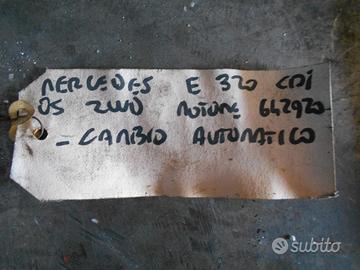 MERCEDES E 320 CDI
05 2WD MOTORE 642920
- CAMBIO AUTOMATICO
subito